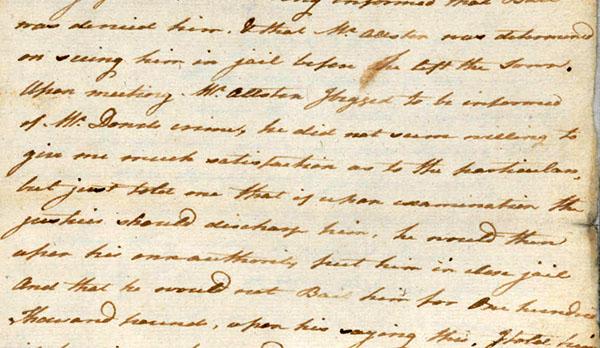 informed that Bail
was denied him. & that Mr. Allston was determined
on seeing him in jail before he left the Town.
Upon meeting Mr. Allston I begged to be informed
of Mr. crime, he did not seem willing to
give me much satisfaction as to the particulars,
but just told me that if upon examination the
justices should discharge him, he would then
upon his own authority put him in close jail
And that he would not Bail him for One hundred
thousand pound, upon his saying this, I told him